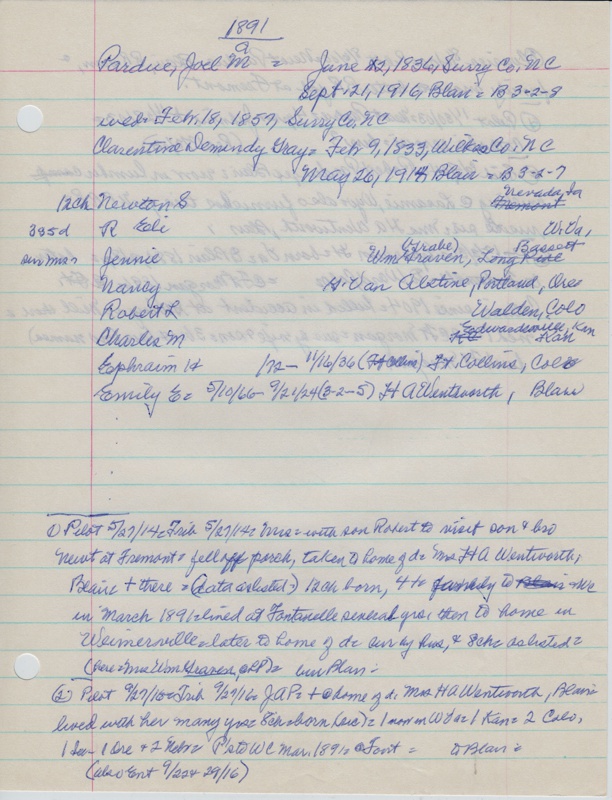 1891
a
Pardue, Joel M = June 22, 1836, Surry Co, NC
Sept 21, 1916, Blair = B 3-2-8
wed = Feb. 18, 1857, Surry Co, NC
Clarentine Demindy Gray = Feb 9, 1833, Wilkes Co, NC
May 26, 1914 Blair = B 3-2-7
12ch Newton S Nevada, Ia Fremont
3 gs d R Eli W. Va,
sur mar Jennie Wm Graven, (Grabe) Long Pine Bassett
Nancy H Van Alstine, Portland, Ores
Robert L Walden, Colo
Charles M Edwardsville, Kan Kan
Ephraim H /72 - 11/16/36 (Ft Collins) Ft. Collins, Colo
Emily E = 5/10/66 - 9/21/24 (3-2-5) H A Wentworth, Blair
① Pilot 5/27/14 = Trib 5/27/14 = Mrs = with son Robert to visit son & bro
Newt at Fremont = fell off porch, taken to home of d = Mrs H A Wentworth,
Blair + there = (data as listed =) 12ch born, 4 to Blair = WC
in March 1891 = lived at Fontanelle several yrs, then to home in
Weimersville = later to home of d = sur by hus, & 8ch = as listed =
(here = Mrs Wm Graven, LP) = bur Blair =
② Pilot 9/27/16 = Trib 9/27/16 = J A P = + @ home of d, Mrs H A Wentworth, Blair
lived with her many yrs = 8ch = born (sic) = 1 now in W Va = 1 Kan = 2 Colo,
1 Ore + 2 Nebr = P's to WC Mar, 1891 = @ Font = @ Blair =
(also Ent 9/22 & 29/16)